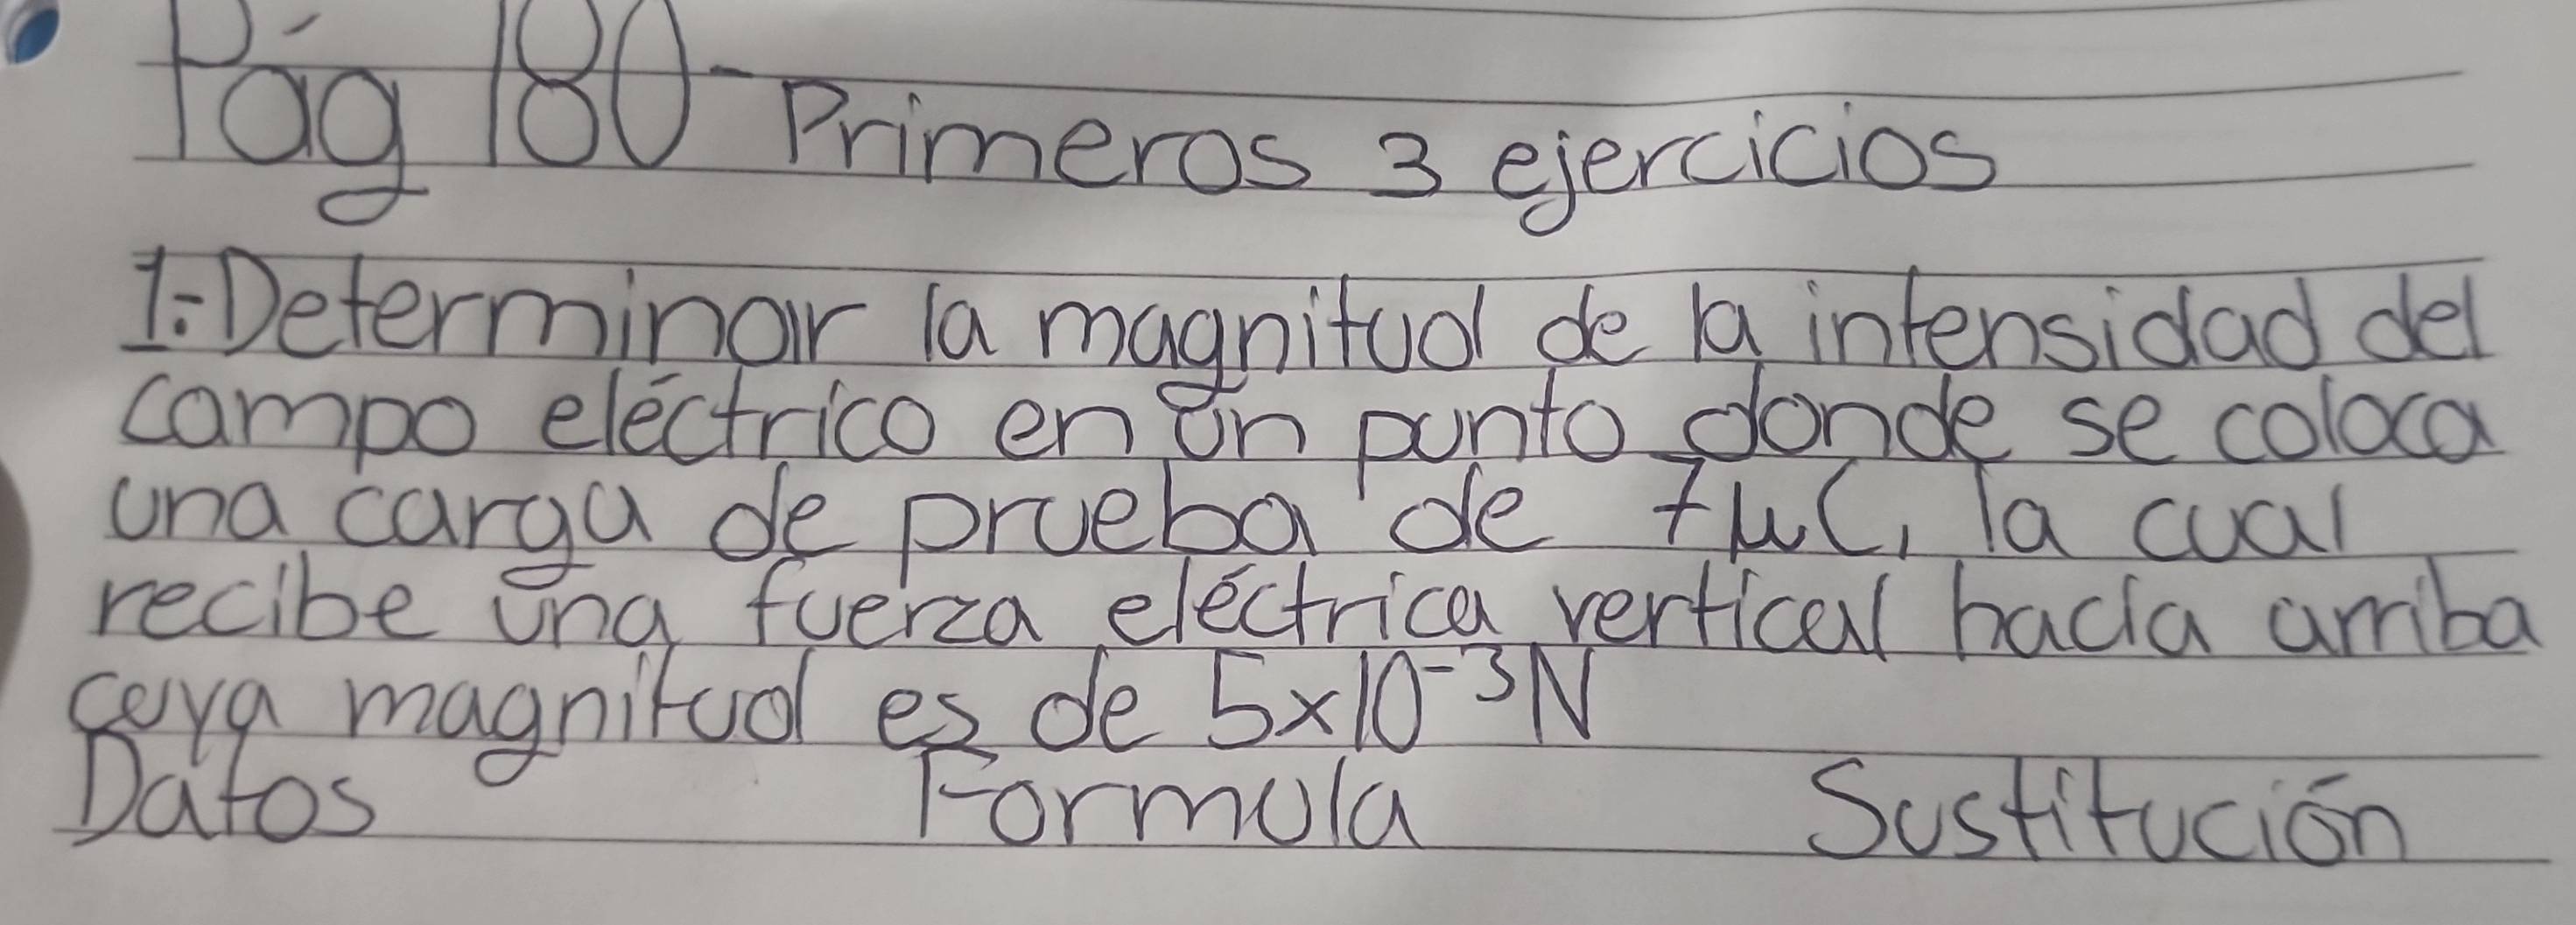 Pág 180- Primeros 3 ejercicios
1.-Determinar la magnitud de la intensidad del
campo eléctrico en un punto donde se coloca
una carga de prueba de 7μC, la cual
recibe una fuerza eléctrica vertical hacia arriba
cuya magnitud es de 5x10⁻³N
Datos Formula Sustitución